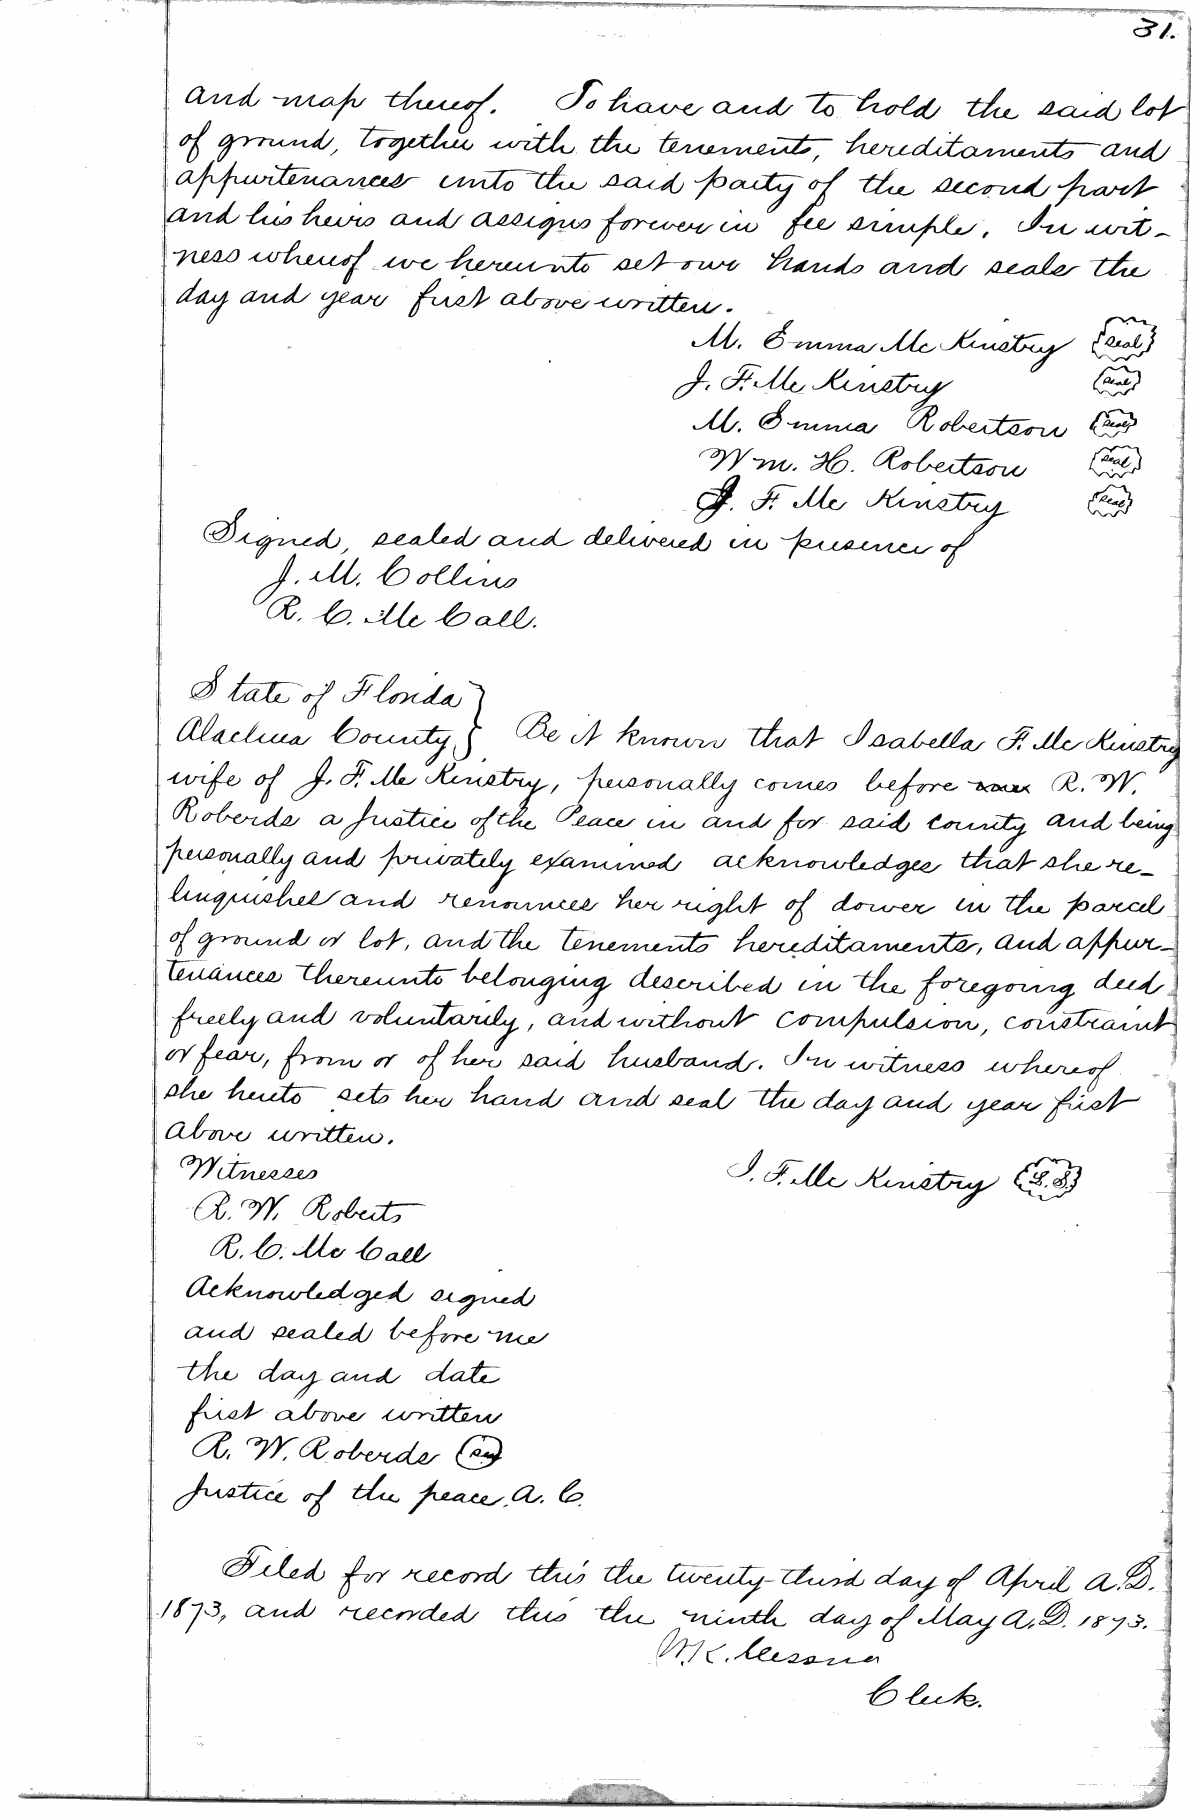 31.
and map thereof. To have and to hold the said lot
of ground, together with the tenements, hereditaments and
appurtenances unto the said party of the second part
and his heirs and assigns forever in fee simple. In wit-
ness whereof we hereunto set our hands and seals the
day and year first above written.
M. Emma McKinstry seal
J. F. McKinstry seal
M. Emma Robertson seal
Wm. H. Robertson seal
J. F. McKinstry seal
Signed, sealed and delivered in presence of
J. M. Collins
R. C. McCall.
State of Florida
Alachua County } Be it known that Isabella F. McKinstry
wife of J. F. McKinstry, personally comes before R. W.
Roberds a Justice of the Peace in and for said county and being
personally and privately examined acknowledges that she re-
linquishes and renounces her right of dower in the parcel
of ground or lot, and the tenements hereditaments, and appur-
tenances thereunto belonging described in the foregoing deed
freely and voluntarily, and without compulsion, constraint
or fear, from or of her said husband. In witness whereof
she hereto sets her hand and seal the day and year first
above written.
Witnesses I. F. McKinstry L.S.
R. W. Roberts
R. C. McCall
Acknowledged signed
and sealed before me
the day and date
first above written
R. W. Roberds
Justice of the peace, A. C.
Filed for record this the twenty-third day of April A.D.
1873, and recorded this the ninth day of May A.D. 1873.
W. K. Cessna
Clerk.